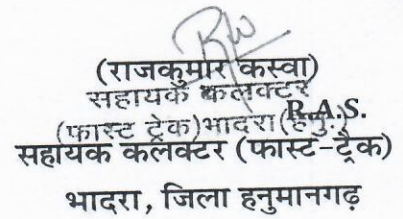 (राजकुमार कस्वा)
सहायक कलक्टर
R.A.S.
(फास्ट ट्रेक)भादरा(हनु.)
सहायक कलक्टर (फास्ट-ट्रैक)
भादरा, जिला हनुमानगढ़